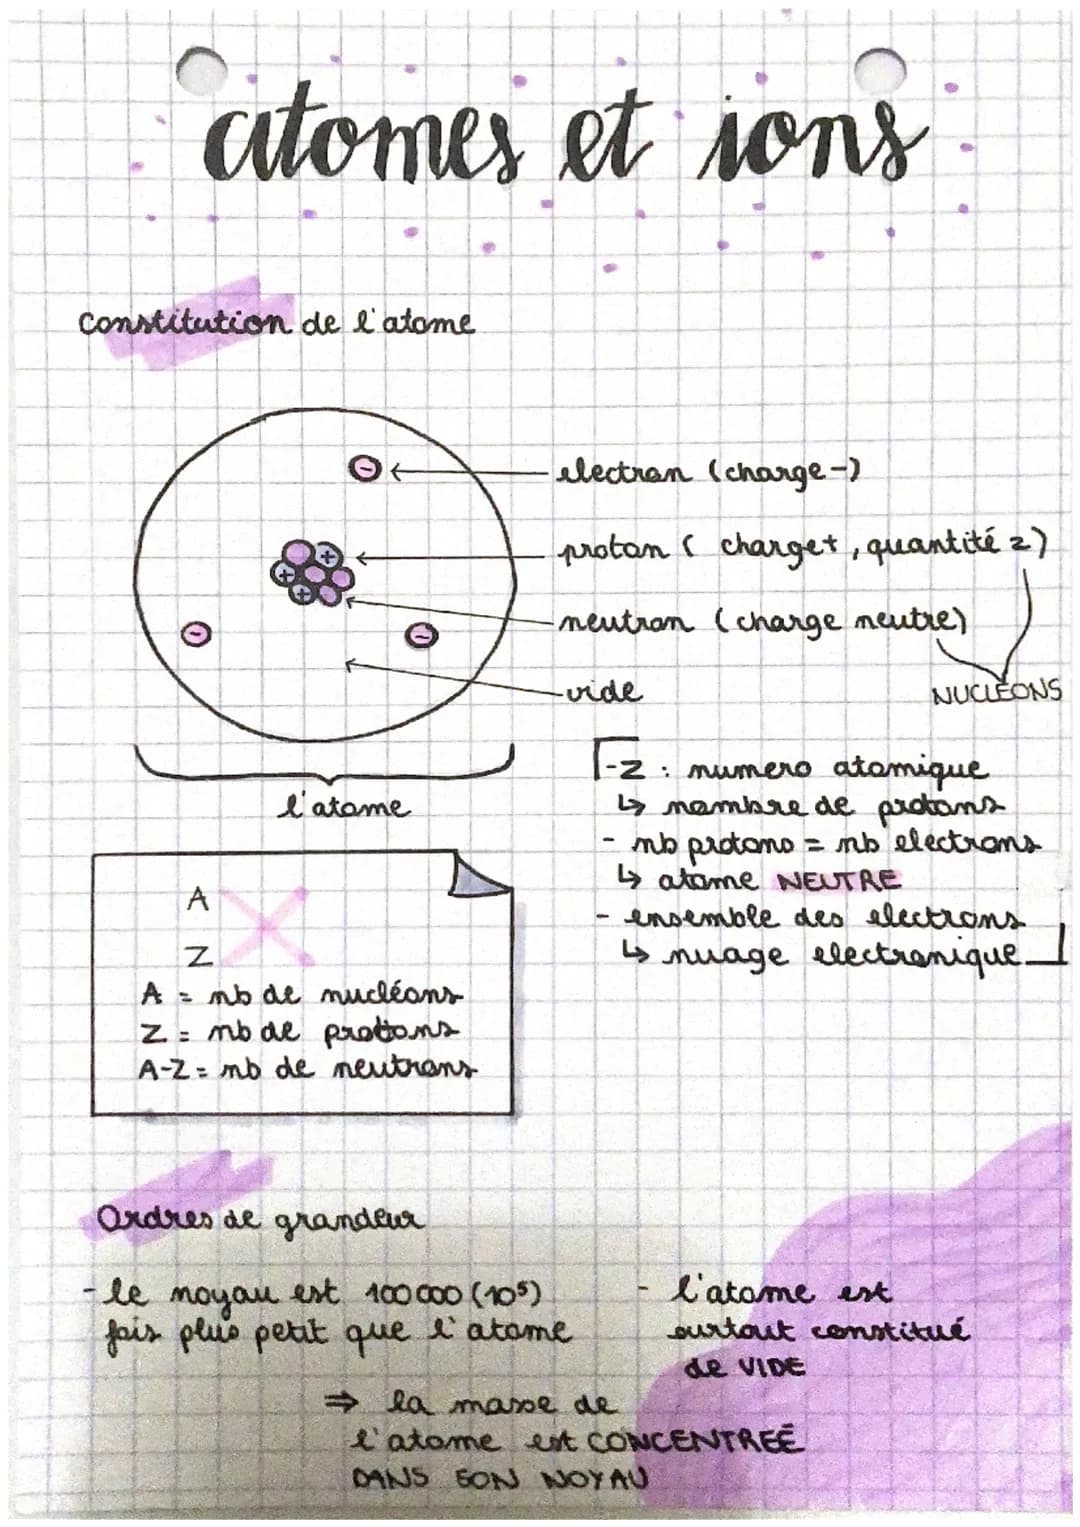 atomes et ions
constitution de l'atome
-
electron (charge -)
+
proton ( charge+, quantité z)
+
+
neutron (charge neutre)
-
-
vide
NUCLÉONS
l'atome
- z : numero atomique
↳ nombre de protons
- nb protons = nb electrons
↳ atome NEUTRE
- ensemble des electrons
↳ nuage electronique
A
X
Z
A = nb de nucléons
Z = nb de protons
A-Z = nb de neutrons
Ordres de grandeur
- le noyau est 100 000 (10⁵)
fois plus petit que l'atome
- l'atome est
surtout constitué
de VIDE
⇒ la masse de
l'atome est CONCENTREÉ
DANS SON NOYAU